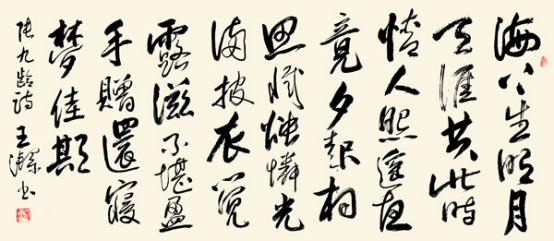 海上生明月
天涯共此時
情人怨遥夜
竟夕起相
思滅燭憐光
滿披衣覺
露滋不堪盈
手贈還寢
夢佳期
張九齡詩 王 書